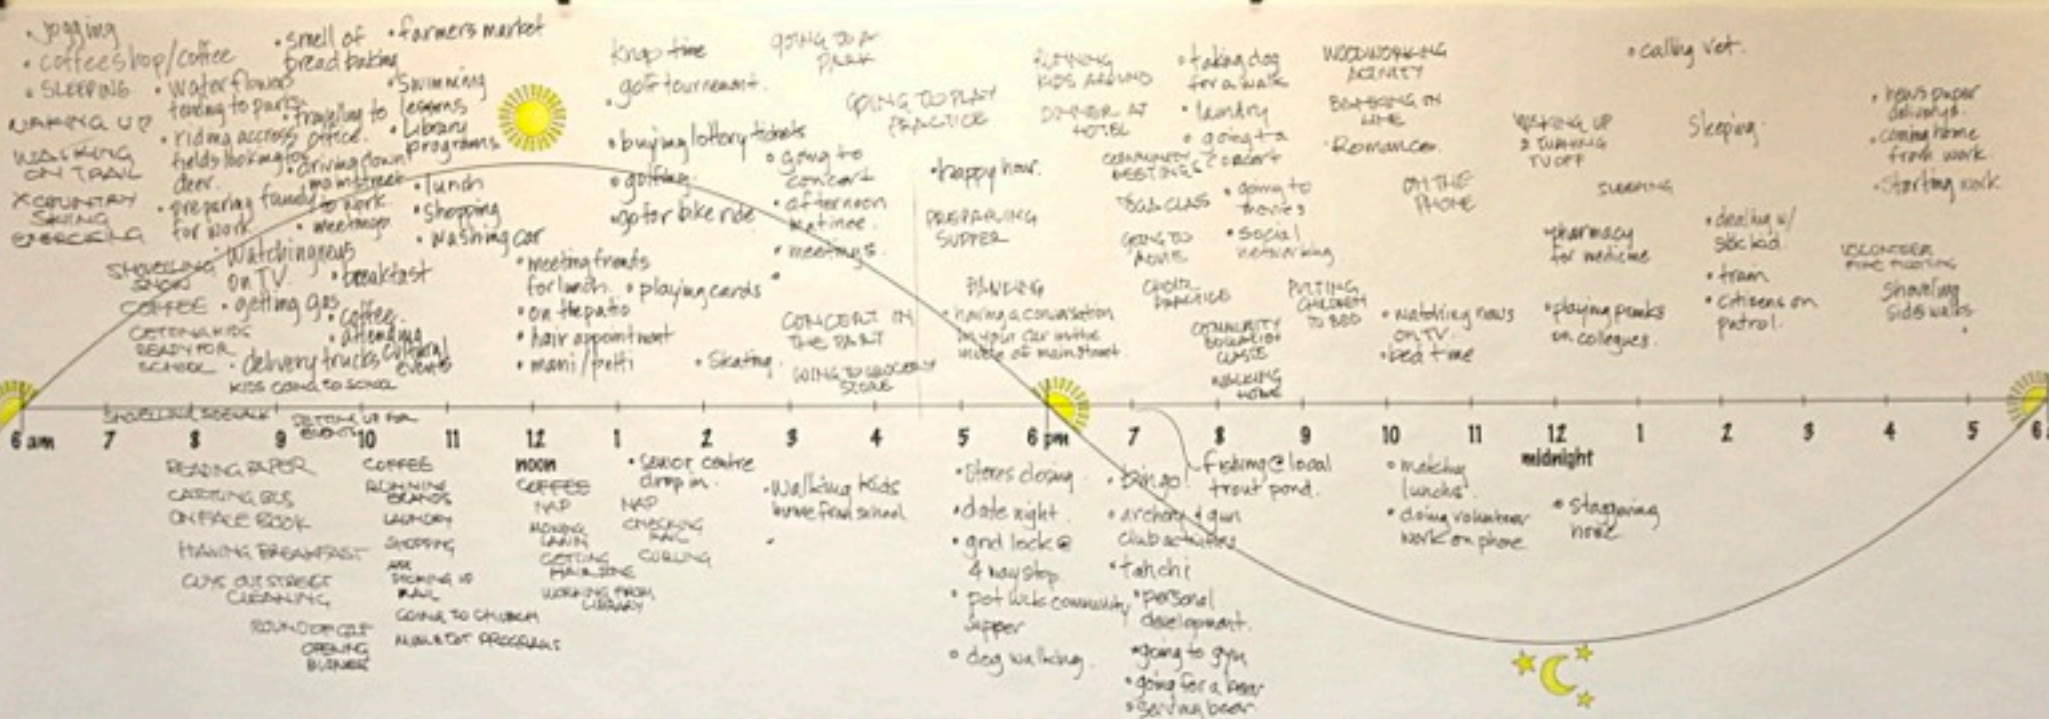 • Jogging
• coffeeshop/coffee
• SLEEPING
WAKING UP
WALKING
ON TRAIL
X COUNTRY
SKIING
EXERCISING
• smell of
bread baking
• Water flowers
• traveling to
office.
• riding across
fields looking for
deer.
• driving down
mainstreet
• preparing family
for work
to work
• meetings
• farmers market
• Swimming
lessons
• Library
programs
• lunch
• Shopping
• washing car
SHOVELLING
SNOW
COFFEE
GETTING KIDS
READY FOR
SCHOOL
• Watching news
on TV
• getting gas
• delivery trucks
KIDS GOING TO SCHOOL
• breakfast
• coffee
• attending
cultural
events
• meeting friends
for lunch.
• on the patio
• hair appointment
• mani/petti
golf tournement.
• buying lottery tickets
• golfing
• go for bike ride
• playing cards
• Skating
GOING TO A
PARK
GOING TO PLAY
PRACTICE
• going to
concert
• afternoon
matinee.
• meetings.
CONCERT IN
THE PARK
GOING TO GROCERY
STORE
• happy hour.
PREPARING
SUPPER
BANKING
• having a conversation
in your car in the
middle of mainstreet.
RUNNING
KIDS AROUND
DINNER AT
HOTEL
COMMUNITY
MEETINGS
YOGA CLASS
GOING TO
MOVIE
CHOIR
PRACTICE
COMMUNITY
EDUCATION
CLASSES
WALKING
HOME
• taking dog
for a walk
• laundry
• going to a
concert
• going to
movies
• social
networking
PUTTING
CHILDREN
TO BED
WOODWORKING
ACTIVITY
BANKING ON
LINE
• Romance.
ON THE
PHONE
• watching news
on TV.
• bed time
WAKING UP
& TURNING
TV OFF
SLEEPING
• pharmacy
for medicine
• playing pranks
on collegues.
• calling vet.
Sleeping.
• dealing w/
sick kid
• train
• citizens on
patrol.
• news paper
delivery.
• coming home
from work.
• Starting work
VOLUNTEER
FIRE FIGHTING
Shoveling
sidewalks
SHOVELLING SIDEWALK
SETTING UP FOR
EVENTS
6 am 7 8 9 10 11 12 1 2 3 4 5 6 pm 7 8 9 10 11 12 1 2 3 4 5 6
noon
midnight
READING PAPER
CATCHING BUS
ON FACE BOOK
HAVING BREAKFAST
GUYS OUT STREET
CLEANING
ROUND OF GOLF
OPENING
BUSINESS
COFFEE
RUNNING
ERRANDS
LAUNDRY
SHOPPING
PICKING UP
MAIL
GOING TO CHURCH
MOM & TOT PROGRAMS
COFFEE
NAP
MOWING
LAWN
GETTING
HAIR DONE
WORKING FROM
LIBRARY
• senior centre
drop in.
NAP
CHECKING
MAIL
CURLING
• Walking kids
home from school
• Stores closing
• date night.
• grid lock @
4 way stop
• pot luck community
supper
• dog walking.
• bingo!
• archery & gun
club activities
• tai chi
• personal
development.
• going to gym
• going for a beer
• serving beer
fishing @ local
trout pond.
• making
lunchs.
• doing volunteer
work on phone.
• staggering
home